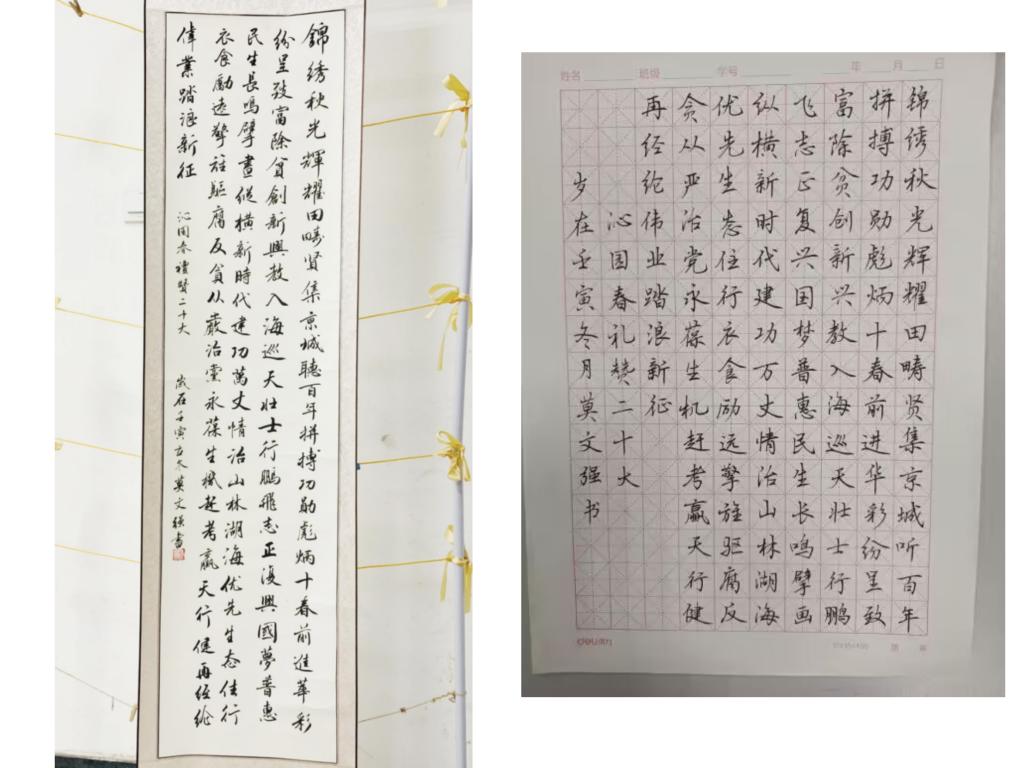 錦绣秋光輝耀田疇贤集京城聽百年拼搏功勋彪炳十春前進華彩
纷呈致富除貧創新興教入海巡天壮士行鵬飛志正復興國夢普惠
民生長鳴擘畫縱橫新時代建功萬丈情治山林湖海优先生态住行
衣食勵远擎旌驅腐反貪从嚴治黨永葆生機赶考赢天行健再经纶
偉業踏浪新征 沁园春禮贊二十大 歲在壬寅冬莫文强書
姓名 班级 学号 年 月 日
锦绣秋光辉耀田畴贤集京城听百年
拼搏功勋彪炳十春前进华彩纷呈致
富除贫创新兴教入海巡天壮士行鹏
飞志正复兴国梦普惠民生长鸣擘画
纵横新时代建功万丈情治山林湖海
优先生态住行衣食励远擎旌驱腐反
贪从严治党永葆生机赶考赢天行健
再经纶伟业踏浪新征
沁园春礼赞二十大
岁在壬寅冬月莫文强书
deli得力